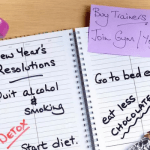 New Year's
Resolutions
Quit alcohol
&
smoking
DETOX
Start diet.
Buy Trainers
Join Gym / Y
Go to bed e
eat less
CHOCOLATE